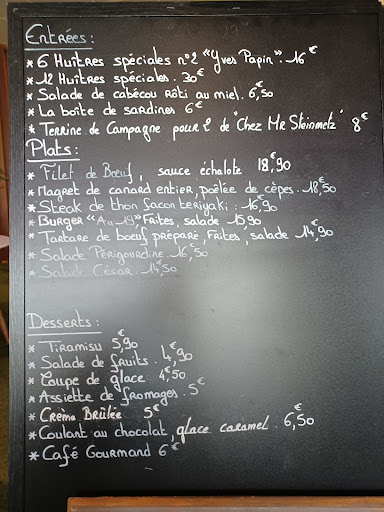 Entrées :
* 6 Huîtres spéciales n°2 "Yves Papin". 16€
* 12 Huîtres spéciales. 30€
* Salade de cabécou rôti au miel. 6,50
* La boîte de sardines 6€
* Terrine de Campagne pour 2 de "Chez Mr Steinmetz" 8€
Plats :
* Filet de Bœuf, sauce échalote 18€,90
* Magret de canard entier, poêlée de cèpes. 18€,50
* Steak de thon façon teriyaki : 16€,90
* Burger "Au 19", Frites, salade 15,90
* Tartare de bœuf préparé, Frites, salade 14€,90
* Salade Périgourdine. 16€,50
* Salade César. 14€,50
Desserts :
* Tiramisu 5€,90
* Salade de fruits. 4€,90
* Coupe de glace 4€,50
* Assiette de fromages. 5€
* Crème Brûlée 5€
* Coulant au chocolat, glace caramel. 6€,50
* Café Gourmand 6€